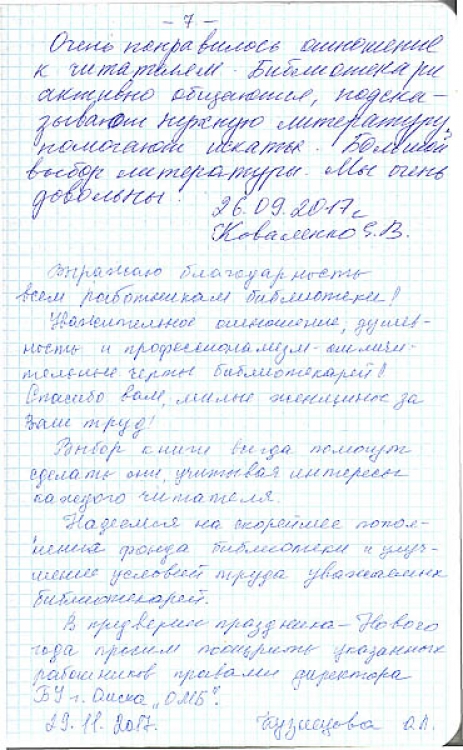 - 7 -
Очень понравилось отношение
к читателям. Библиотекари
активно общаются, подска-
зывают нужную литературу,
помогают искать. Большой
выбор литературы. Мы очень
довольны.
26.09.2017г.
Коваленко Е.В.
Выражаю благодарность
всем работникам библиотеки!
Уважительное отношение, душев-
ность и профессионализм - отличи-
тельные черты библиотекарей!
Спасибо вам, милые женщины за
Ваш труд!
Выбор книги всегда помогут
сделать они, учитывая интересы
каждого читателя.
Надеемся на скорейшее попол-
нения фонда библиотеки и улуч-
шение условий труда уважаемых
библиотекарей.
В преддверии праздника - Нового
года просим поощрить указанных
работников правами директора
БУ г. Омска „ОМБ".
29.11.2017.
Кузнецова О.Л.